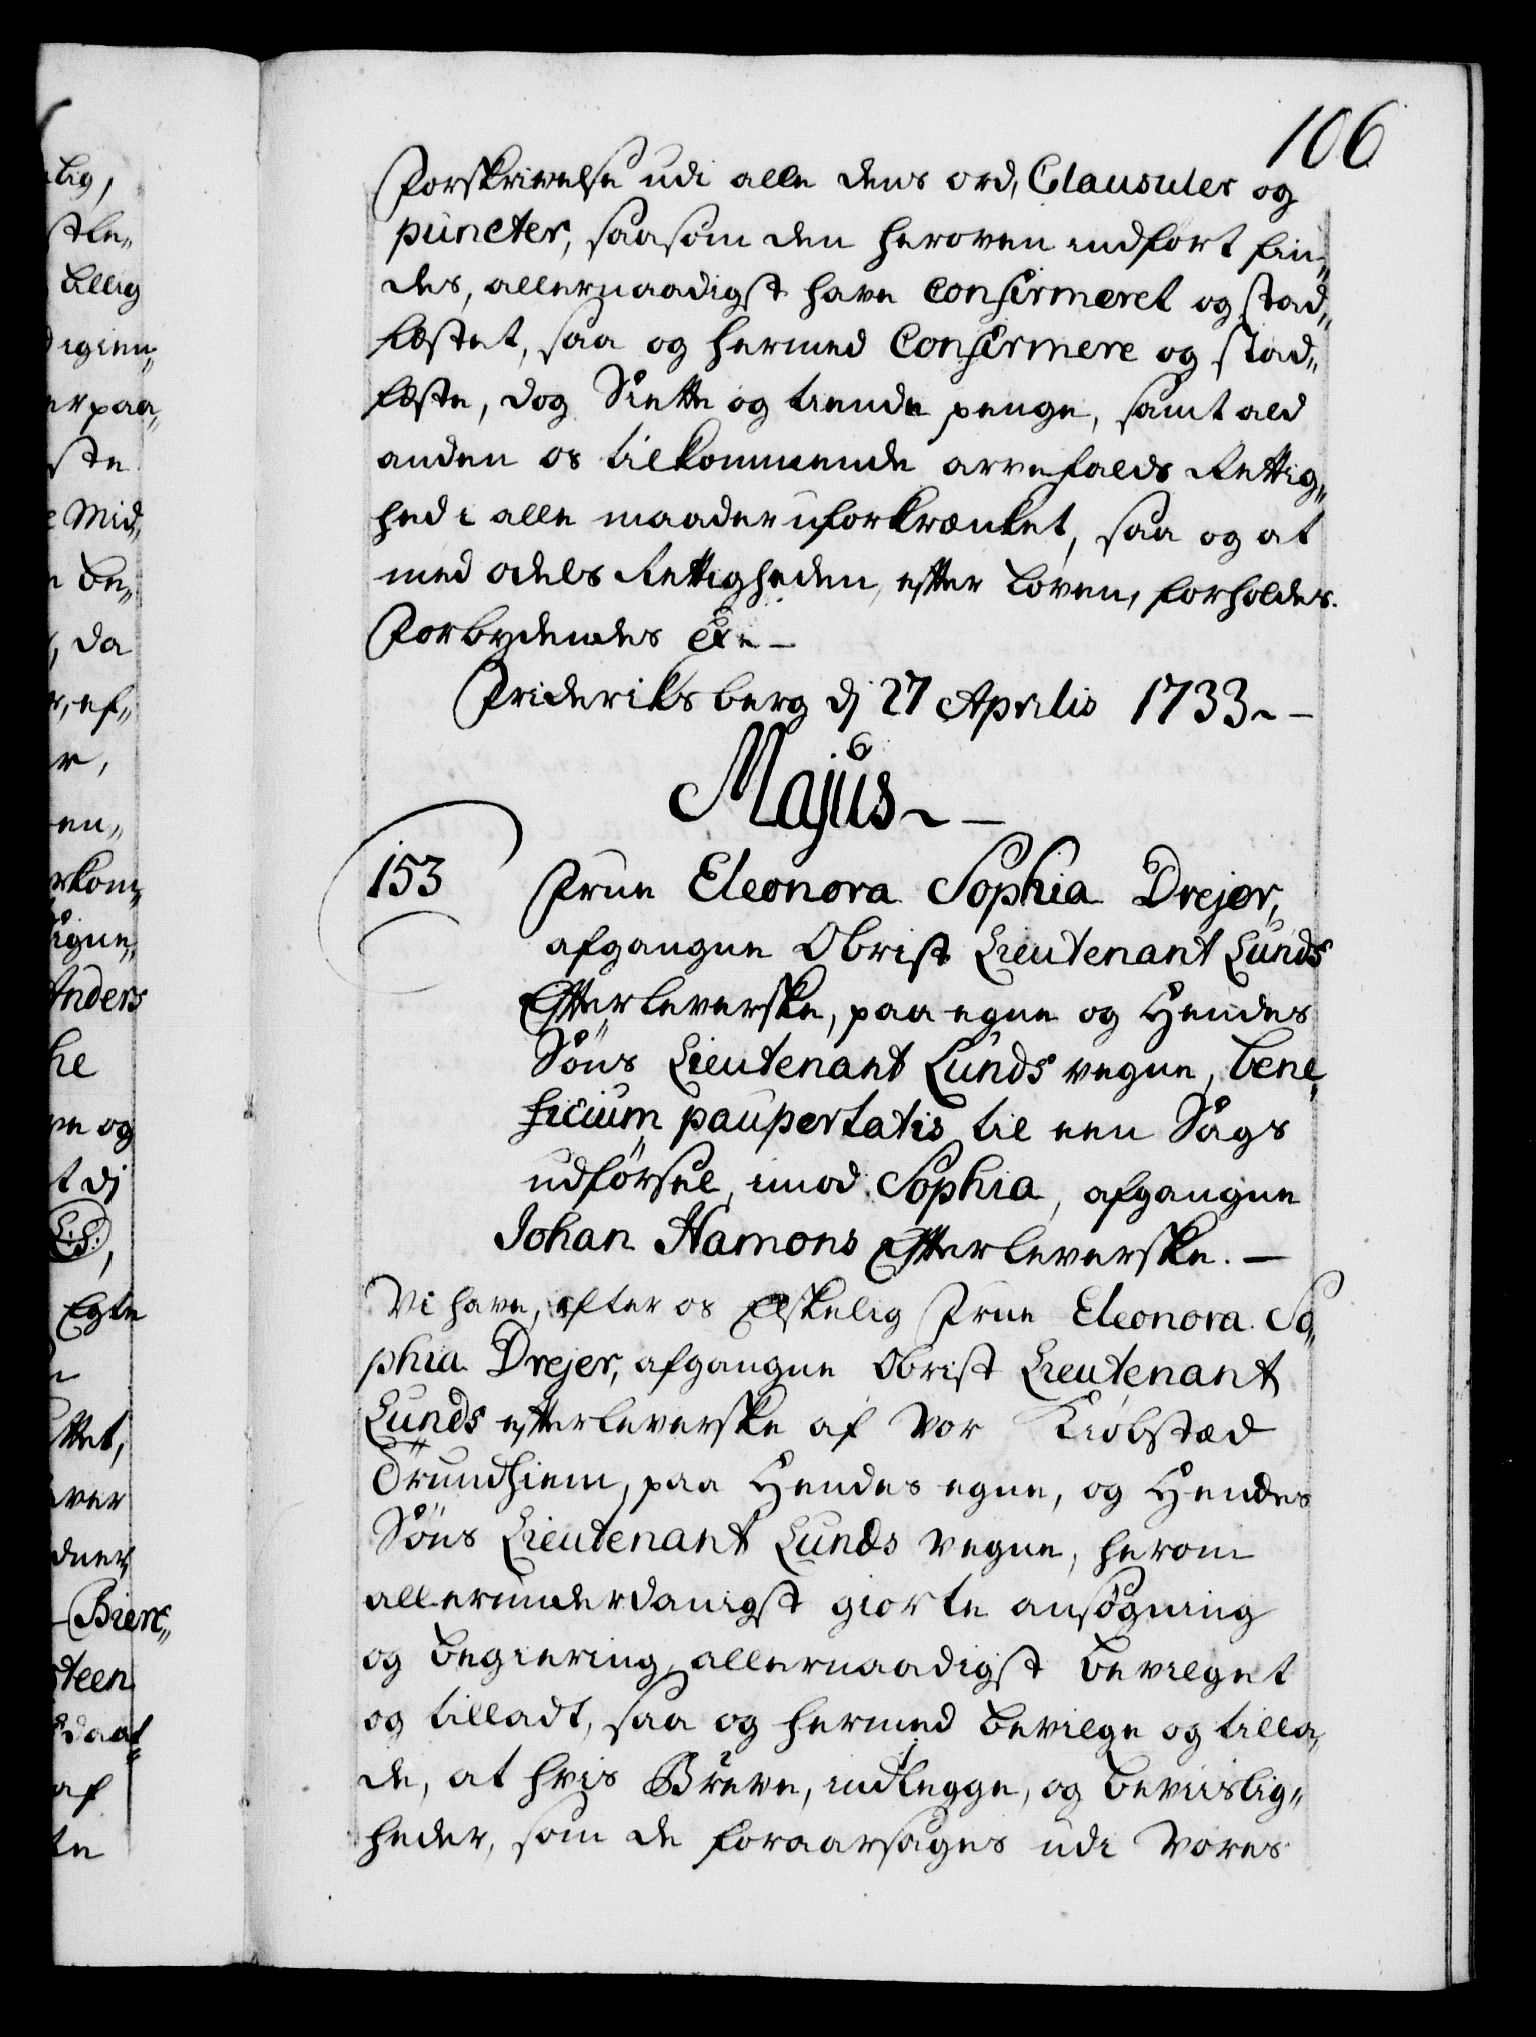 106
Forskrivelse udi alle dens ord, Clausuler og
puncter, saasom den heroven indført fin„
des, allernaadigst have Confirmeret og stad„
fæstet, saa og hermed Confirmere og stad„
fæste, dog Siette og tiende penge, samt ald
anden os tilkommende arvefalds Rettig„
hed i alle maader uforkrænket, saa og at
med odels Rettigheden, efter Loven, forholdes.
Forbydendes Etc –
Frideriksberg dj 27 Aprilis 1733 –
Majus –
153
Frue Eleonora Sophia Drejer,
afgangne Obrist Lieutenant Lunds
Efterleverske, paa egne og Hendes
Söns Lieutenant Lunds vegne, bene„
ficium paupertatis til een Sags
udförsel, imod Sophia, afgangne
Johan Hamons Efterleverske. –
Vi have, efter os Elskelig Frue Eleonora So„
phia Drejer, afgangne Obrist Lieutenant
Lunds efterleverske af Vor Kiøbstæd
Trundhiem, paa Hendes egne, og Hendes
Söns Lieutenant Lunds vegne, herom
allerunderdanigst giorte ansøgning
og begiering, allernaadigst bevilget
og tilladt, saa og hermed bevilge og tilla„
de, at hvis Breve, indlegge, og beviislig„
heder, som de foraarsages udi Vores
tlig,
stle„
billig
digien„
er paa„
ste
e Mid„
n be„
, da
r, ef„
r,
en„
rkom„
Anders
he
ve og
t dj
L:S:,
Egte
ttet,
over
dner
Biere„
steen
daat
af
te